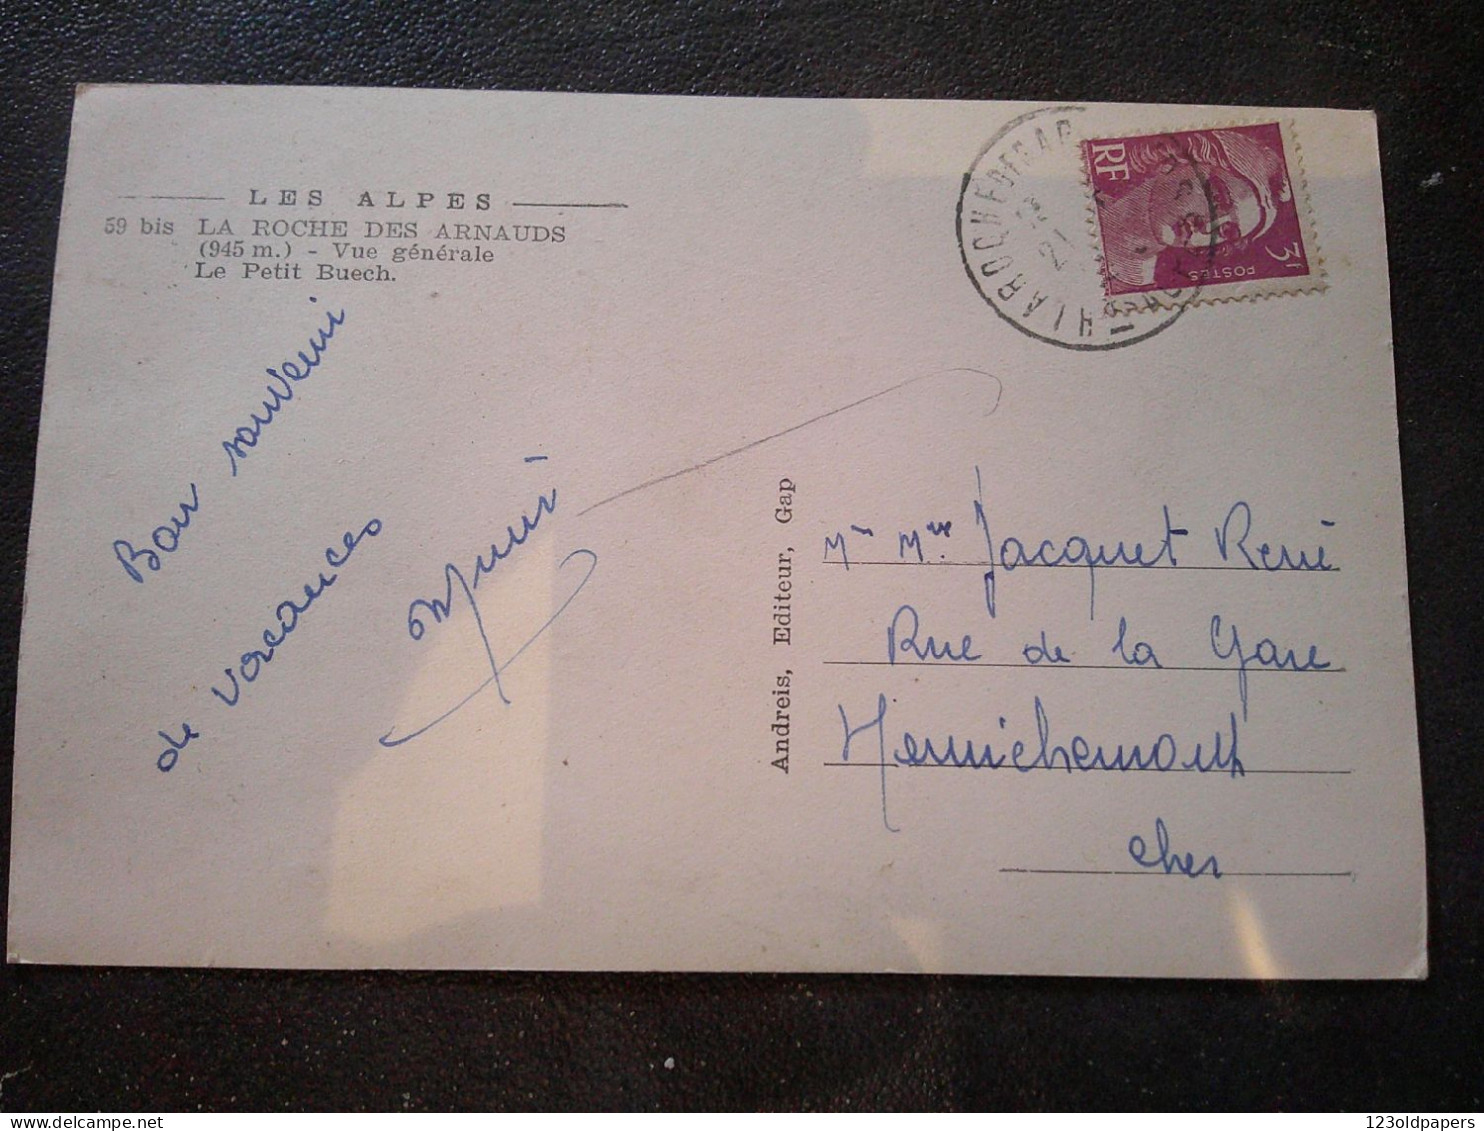 LES ALPES
59 bis LA ROCHE DES ARNAUDS
(945 m.) - Vue générale
Le Petit Buech.
Bon souvenir
de vacances
Andreis, Editeur, Gap
RF
3f
POSTES
Mr Mme Jacquet René
Rue de la Gare
Henrichemont
Cher
123oldpapers